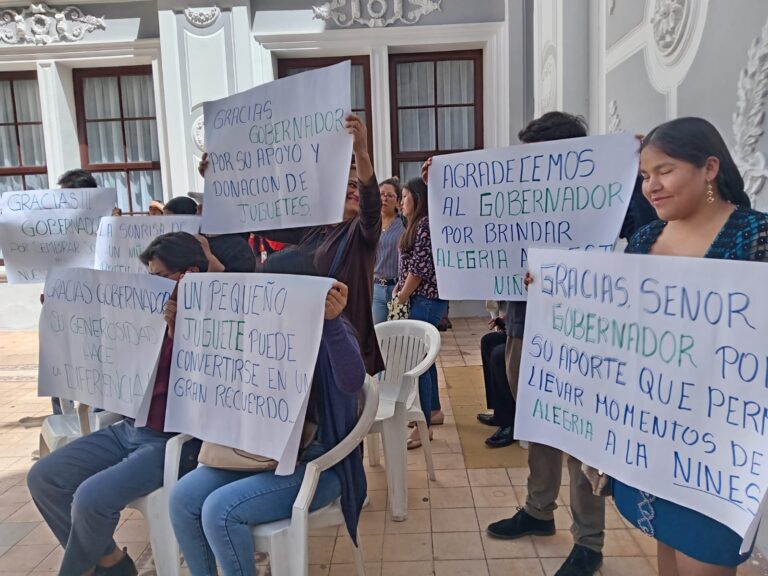 GRACIAS!!!
GOBERNADOR
POR SEMBRAR
LA SONRISA DE
UN NIÑO
GRACIAS
GOBERNADOR
POR SU APOYO Y
DONACION DE
JUGUETES.
GRACIAS GOBERNADOR
SU GENEROSIDAD
HACE
LA DIFERENCIA
UN PEQUEÑO
JUGUETE PUEDE
CONVERTIRSE EN U
GRAN RECUERDO..
AGRADECEMOS
AL GOBERNADOR
POR BRINDAR
ALEGRIA A
NIÑ
GRACIAS, SEÑOR
GOBERNADOR PO
SU APORTE QUE PERM
LLEVAR MOMENTOS DE
ALEGRIA A LA NIÑES